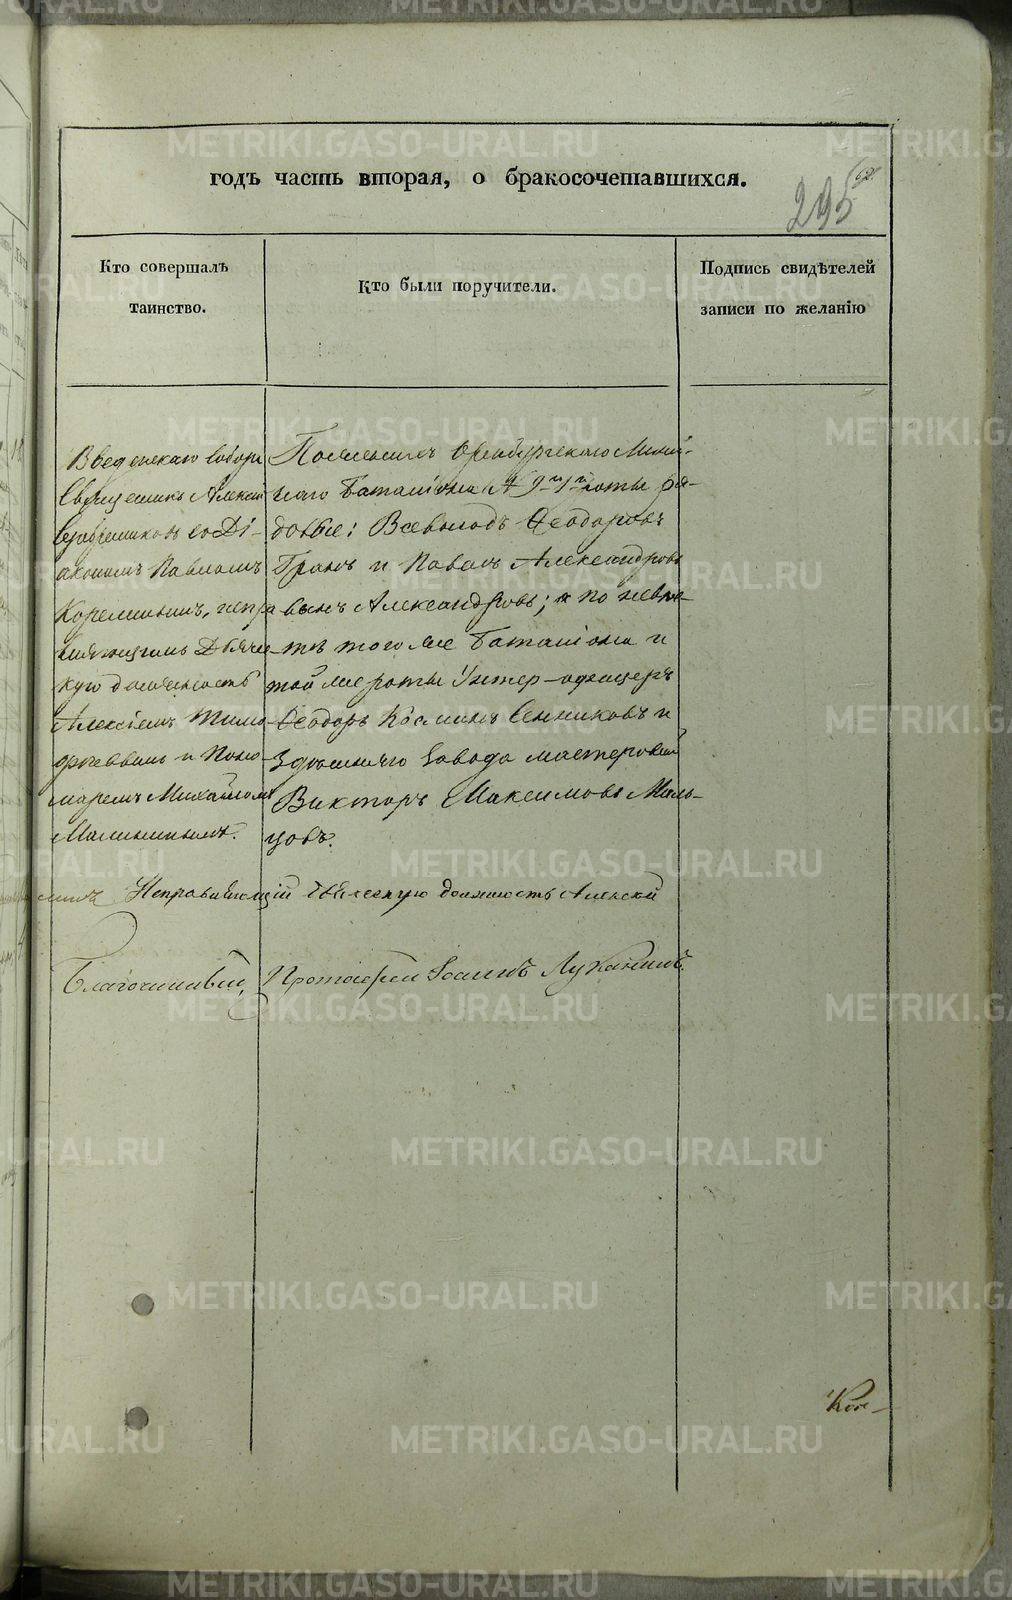 годъ часть вторая, о бракосочетавшихся.
295
Кто совершалъ
таинство.
Кто были поручители.
Подпись свидѣтелей
записи по желанію
Введенскаго Собора
Священникъ Алексій
со Ді-
акономъ Павломъ
испра
вляющимъ Дьячи-
кую должность
Алексіемъ Тимо-
феевымъ и Поно-
маремъ Михайломъ
Малининымъ.
По женихѣ Оренбургскаго Линей-
наго Баталіона № 9го 1й роты ря-
довые: Всеволодъ Ѳеодоровъ
и Павелъ Александровъ
Александровъ; по невѣс-
тѣ того же Баталіона и
той же роты Унтер-офицеръ
Ѳеодоръ Косминъ Сенниковъ и
Здѣшняго Завода мастеровой
Викторъ Максимовъ Маль-
цовъ.
Исправляющій должность Алексій
Благочинный, Протоіерей Іоаннъ Луканинъ.
METRIKI.GASO-URAL.RU